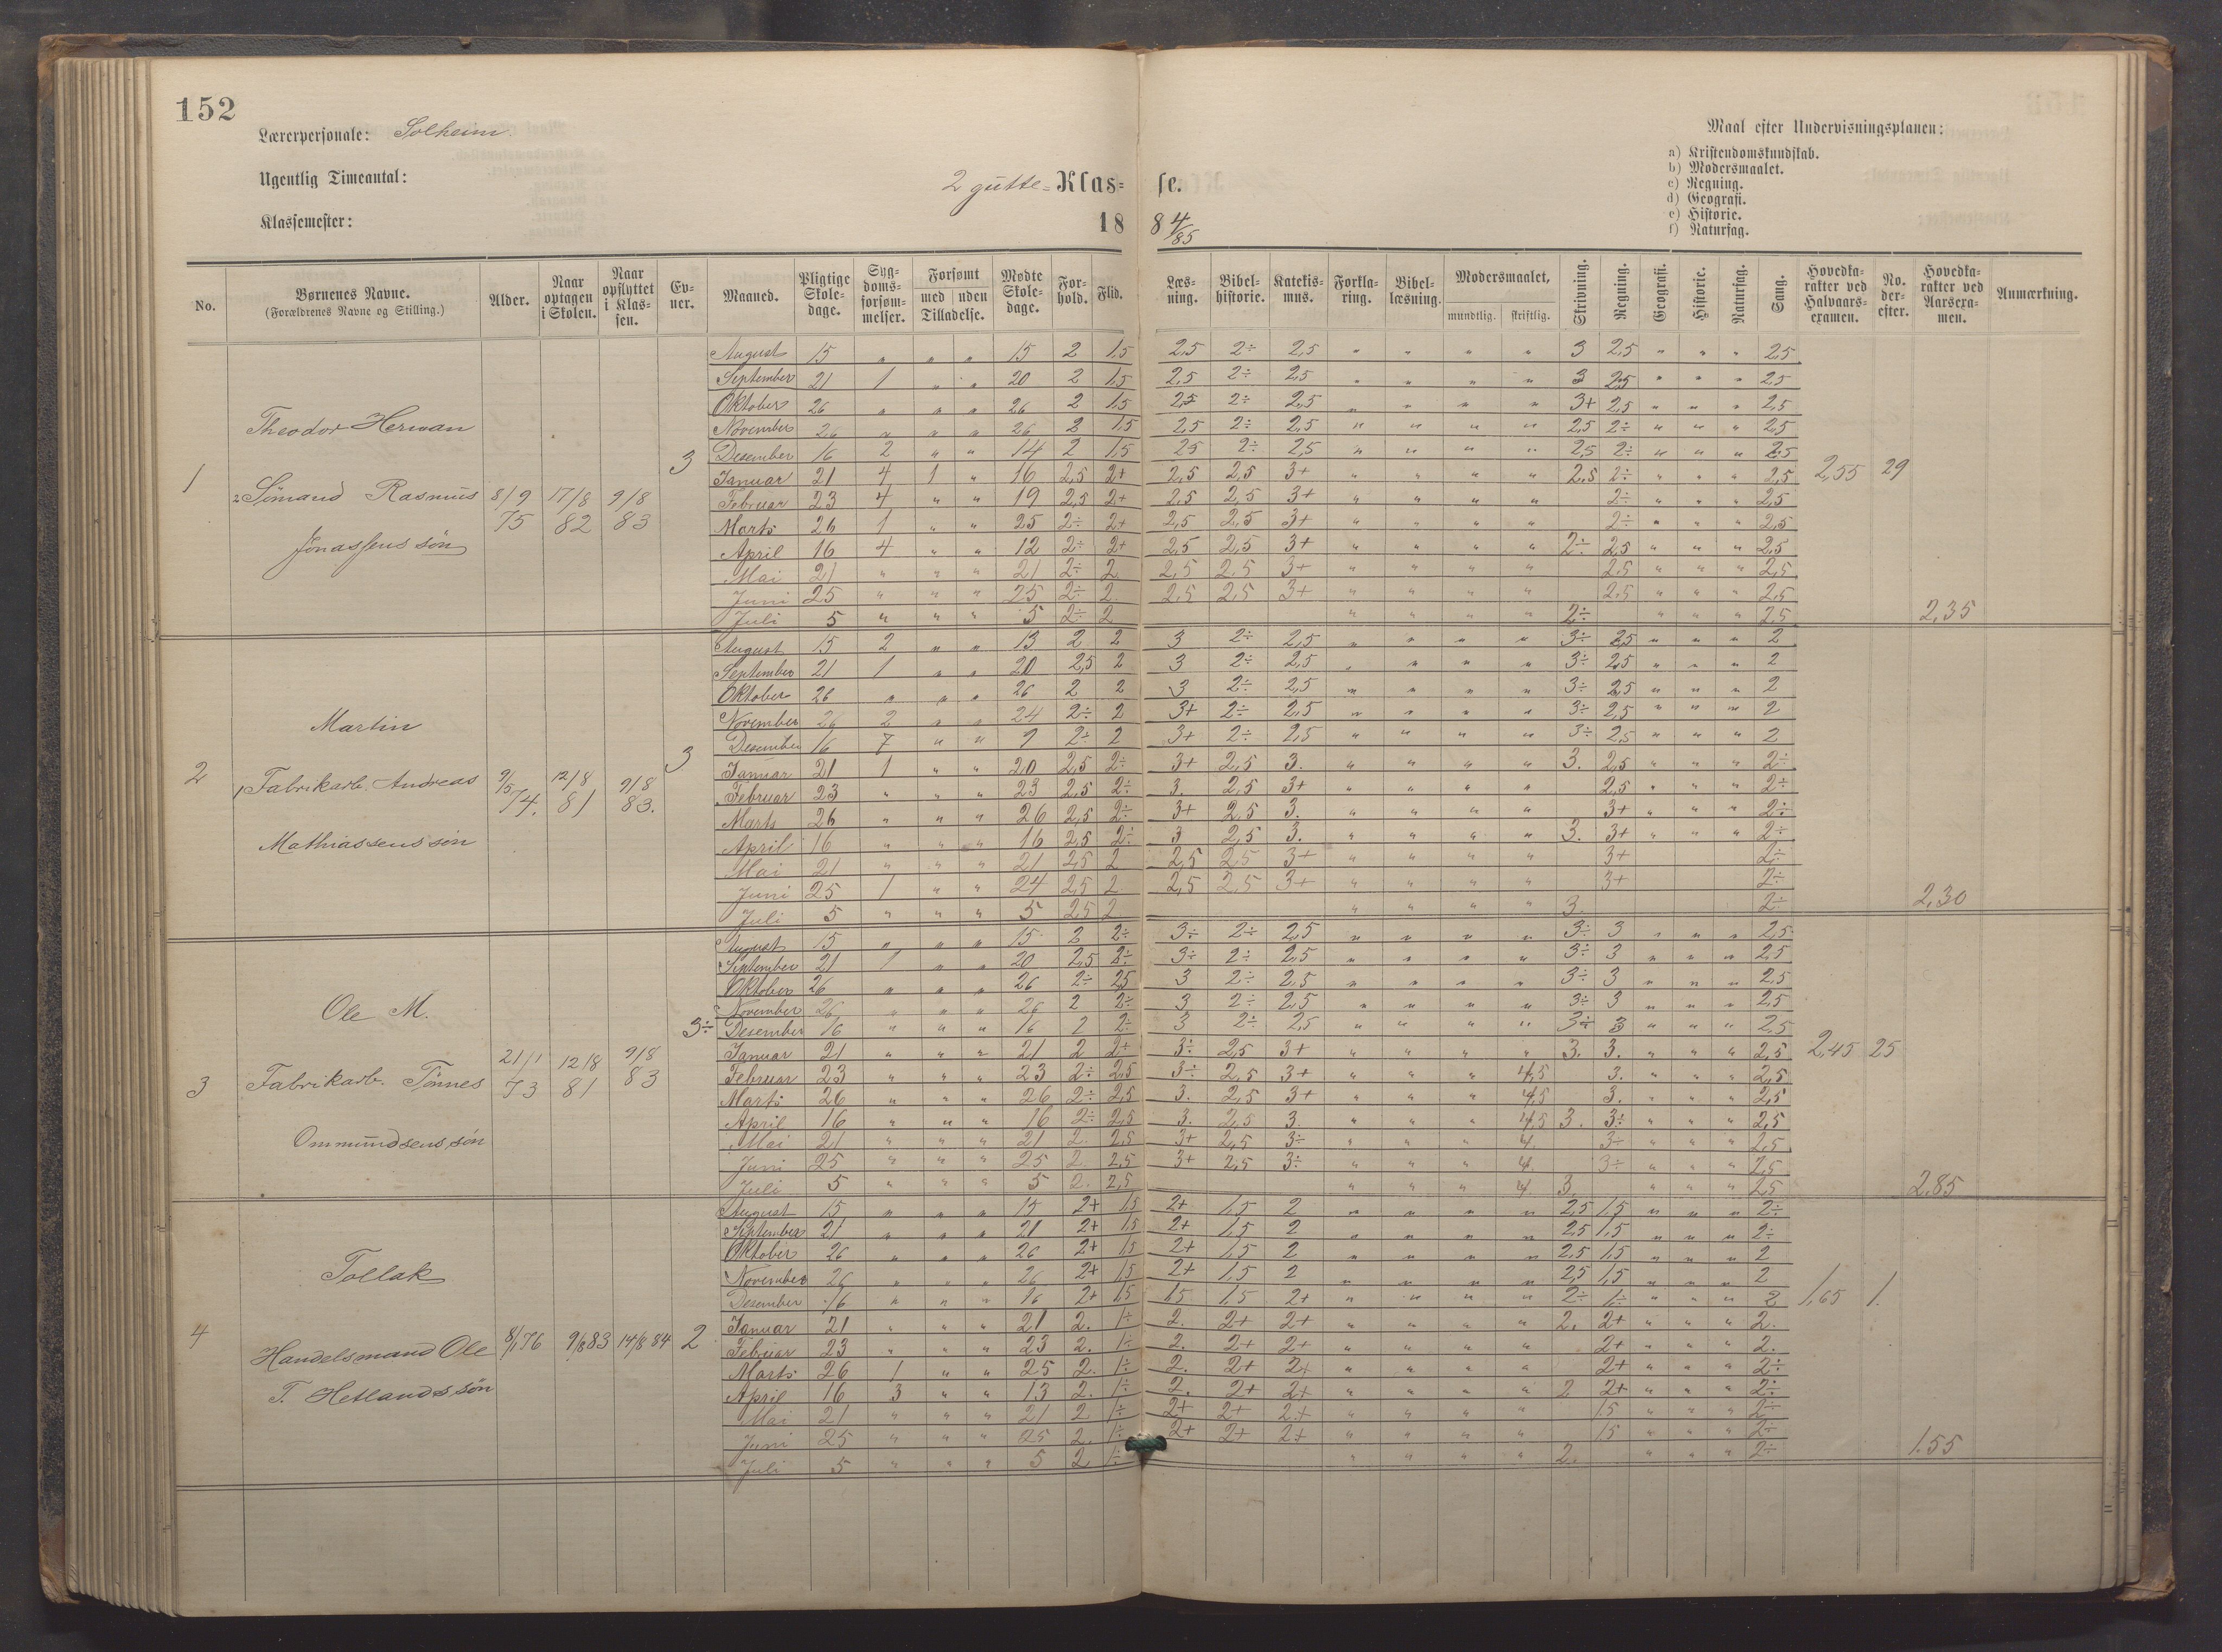 152
Lærerpersonale: Solheim.
Ugentlig Timeantal:
Klassemester:
2 gutte= Klas= se.
18 84/85
Maal efter Undervisningsplanen:
a) Kristendomskundskab.
b) Modersmaalet.
c) Regning.
d) Geografi.
e) Historie.
f) Naturfag.
No. Børnenes Navne. (Forældrenes Navne og Stilling.) Alder. Naar optagen i Skolen. Naar opflyttet i Klas- sen. Ev- ner. Maaned. Pligtige Skole- dage. Syg- doms- forsøm- melser. Forsømt med uden Tilladelse. Mødte Skole- dage. For- hold. Flid. Læs- ning. Bibel- historie. Katekis- mus. Forkla- ring. Bibel- læsning. Modersmaalet, mundtlig. skriftlig. Skrivning. Regning. Geografi. Historie. Naturfag. Sang. Hovedka- rakter ved Halvaars- examen. No. der- efter. Hovedka- rakter ved Aarsexa- men. Anmærkning.
1 Theodor Herman
Sömand Rasmus
Jonassens sön
8/9 75 17/8 82 9/8 83 3
August 15 „ „ „ 15 2 1,5 2,5 2÷ 2,5 „ „ „ „ 3 2,5 „ „ „ 2,5
September 21 1 „ „ 20 2 1,5 2,5 2÷ 2,5 „ „ „ „ 3 2,5 „ „ „ 2,5
Oktober 26 „ „ „ 26 2 1,5 2,5 2÷ 2,5 „ „ „ „ 3+ 2,5 „ „ „ 2,5
November 26 „ „ „ 26 2 1,5 2,5 2÷ 2,5 „ „ „ „ 2,5 2÷ „ „ „ 2,5
Desember 16 2 „ „ 14 2 1,5 2,5 2÷ 2,5 „ „ „ „ 2,5 2÷ „ „ „ 2,5
Januar 21 4 1 „ 16 2,5 2+ 2,5 2,5 3+ „ „ „ „ 2,5 2÷ „ „ „ 2,5 2,55 29
Februar 23 4 „ „ 19 2,5 2+ 2,5 2,5 3+ „ „ „ „ 2÷ „ „ „ 2,5
Marts 26 1 „ „ 25 2÷ 2+ 2,5 2,5 3+ „ „ „ „ 2÷ „ „ „ 2,5
April 16 4 „ „ 12 2÷ 2+ 2,5 2,5 3+ „ „ „ „ 2÷ 2,5 „ „ „ 2,5
Mai 21 „ „ „ 21 2÷ 2 2,5 2,5 3+ „ „ „ „ 2,5 „ „ „ 2,5
Juni 25 „ „ „ 25 2÷ 2. 2,5 2,5 3+ „ „ „ „ 2,5 „ „ „ 2,5
Juli 5 „ „ „ 5 2÷ 2 „ „ „ „ 2÷ „ „ „ 2,5 2,35
2 Martin
Fabrikarb. Andreas
Mathiassens sön
9/5 74. 12/8 81 9/8 83. 3
August 15 2 „ „ 13 2 2 3 2÷ 2,5 „ „ „ „ 3÷ 2,5 „ „ „ 2
September 21 1 „ „ 20 2,5 2 3 2÷ 2,5 „ „ „ „ 3÷ 2,5 „ „ „ 2
Oktober 26 „ „ „ 26 2 2 3 2÷ 2,5 „ „ „ „ 3÷ 2,5 „ „ „ 2
November 26 2 „ „ 24 2÷ 2 3+ 2÷ 2,5 „ „ „ „ 3÷ 2,5 „ „ „ 2
Desember 16 7 „ „ 9 2÷ 2 3+ 2÷ 2,5 „ „ „ „ 3÷ 2,5 „ „ „ 2
Januar 21 1 „ „ 20 2,5 2÷ 3+ 2,5 3. „ „ „ „ 3. 2,5 „ „ „ 2÷
Februar 23 „ „ „ 23 2,5 2÷ 3. 2,5 3+ „ „ „ „ 2,5 „ „ „ 2÷
Marts 26 „ „ „ 26 2,5 2÷ 3+ 2,5 3. „ „ „ „ 3+ „ „ „ 2÷
April 16 „ „ „ 16 2,5 2÷ 3 2,5 3. „ „ „ „ 3. 3+ „ „ „ 2÷
Mai 21 „ „ „ 21 2,5 2 2,5 2,5 3+ „ „ „ „ 3+ 2÷
Juni 25 1 „ „ 24 2,5 2 2,5 2,5 3+ „ „ „ „ 3+ 2÷
Juli 5 „ „ „ 5 2,5 2 „ „ „ „ 3. 2÷ 2,30
3 Ole M.
Fabrikarb. Tönnes
Ommundsens sön
21/1 73 12/8 81 9/8 83 3÷
August 15 „ „ „ 15 2 2÷ 3÷ 2÷ 2,5 „ „ „ „ 3÷ 3 „ „ „ 2,5
September 21 1 „ „ 20 2,5 2÷ 3÷ 2÷ 2,5 „ „ „ „ 3÷ 3 „ „ „ 2,5
Oktober 26 „ „ „ 26 2÷ 2,5 3 2÷ 2,5 „ „ „ „ 3÷ 3 „ „ „ 2,5
November 26 „ „ „ 26 2 2÷ 3 2÷ 2,5 „ „ „ „ 3÷ 3 „ „ „ 2,5
Desember 16 „ „ „ 16 2 2÷ 3 2÷ 2,5 „ „ „ „ 3÷ 3 „ „ „ 2,5
Januar 21 „ „ „ 21 2 2+ 3÷ 2,5 3+ „ „ „ „ 3. 3. „ „ „ 2,5 2,45 25
Februar 23 „ „ „ 23 2÷ 2,5 3÷ 2,5 3+ „ „ „ 4,5 3. „ „ „ 2,5
Marts 26 „ „ „ 26 2÷ 2,5 3. 2,5 3+ „ „ „ 4,5 3. „ „ „ 2,5
April 16 „ „ „ 16 2÷ 2,5 3. 2,5 3. „ „ „ 4,5 3. 3÷ „ „ „ 2,5
Mai 21 „ „ „ 21 2. 2,5 3+ 2,5 3÷ „ „ „ 4. 3÷ „ „ „ 2,5
Juni 25 „ „ „ 25 2. 2,5 3+ 2,5 3÷ „ „ „ 4. 3÷ „ „ „ 2,5
Juli 5 „ „ „ 5 2. 2,5 „ „ „ 4. 3. „ „ „ 2,5 2,85
4 Tollak
Handelsmand Ole
T. Hetlands sön
8/1 76 9/8 83 14/8 84 2
August 15 „ „ „ 15 2+ 1,5 2+ 1,5 2 „ „ „ „ 2,5 1,5 „ „ „ 2÷
September 21 „ „ „ 21 2+ 1,5 2+ 1,5 2 „ „ „ „ 2,5 1,5 „ „ „ 2÷
Oktober 26 „ „ „ 26 2+ 1,5 2+ 1,5 2 „ „ „ „ 2,5 1,5 „ „ „ 2
November 26 „ „ „ 26 2+ 1,5 2+ 1,5 2 „ „ „ „ 2,5 1,5 „ „ „ 2
Desember 16 „ „ „ 16 2+ 1,5 1,5 1,5 2+ „ „ „ „ 2÷ 1÷ „ „ „ 2 1,65 1.
Januar 21 „ „ „ 21 2. 1÷ 2. 2+ 2+ „ „ „ „ 2. 2+ „ „ „ 2.
Februar 23 „ „ „ 23 2. 1÷ 2. 2+ 2+ „ „ „ „ 2+ „ „ „ 2.
Marts 26 1 „ „ 25 2. 1÷ 2. 2+ 2+ „ „ „ „ 2+ „ „ „ 2÷
April 16 3 „ „ 13 2. 1÷ 2. 2+ 2+ „ „ „ „ 2 2+ „ „ „ 2÷
Mai 21 „ „ „ 21 2 1÷ 2+ 2+ 2+ „ „ „ „ 1,5 „ „ „ 2÷
Juni 25 „ „ „ 25 2. 1÷ 2+ 2+ 2+ „ „ „ „ 1,5 „ „ „ 2÷
Juli 5 „ „ „ 5 2 1÷ „ „ „ „ 2. „ „ „ 2÷ 1.55